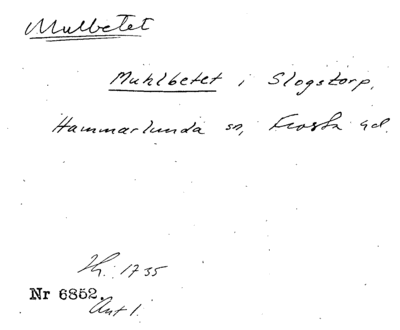 Mulbetet
Muhlbetet i Slogstorp,
Hammarlunda sn, Frosta hd.
Th. 1735
Nr 6852.
Ant 1.